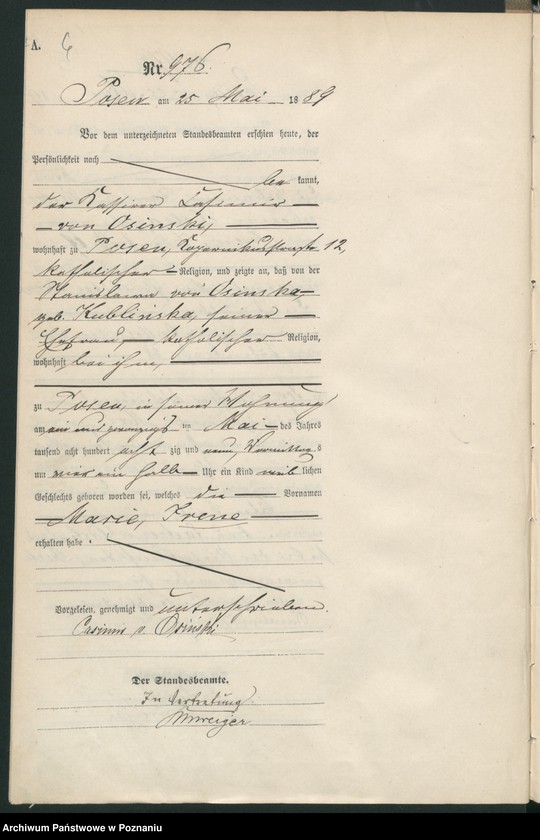 A. 6
Nr. 976.
Posen am 25 Mai 1889
Vor dem unterzeichneten Standesbeamten erschien heute, der
Persönlichkeit nach
be kannt,
der Kassirer Casimir
von Osinski,
wohnhaft zu Posen, Kopernikusstraße 12,
katholischer Religion, und zeigte an, daß von der
Stanislawa von Osinska,
geb. Kublinska, seiner
Ehefrau, katholischer Religion,
wohnhaft bei ihm,
zu Posen, in seiner Wohnung,
am ein und zwanzigst en Mai des Jahres
tausend acht hundert acht zig und neun, Vormittags
um vier ein halb Uhr ein Kind weib lichen
Geschlechts geboren worden sei, welches die Vornamen
Marie, Irene
erhalten habe.
Vorgelesen, genehmigt und unterschrieben.
Casimir v. Osiński
Der Standesbeamte.
In Vertretung
Archiwum Państwowe w Poznaniu